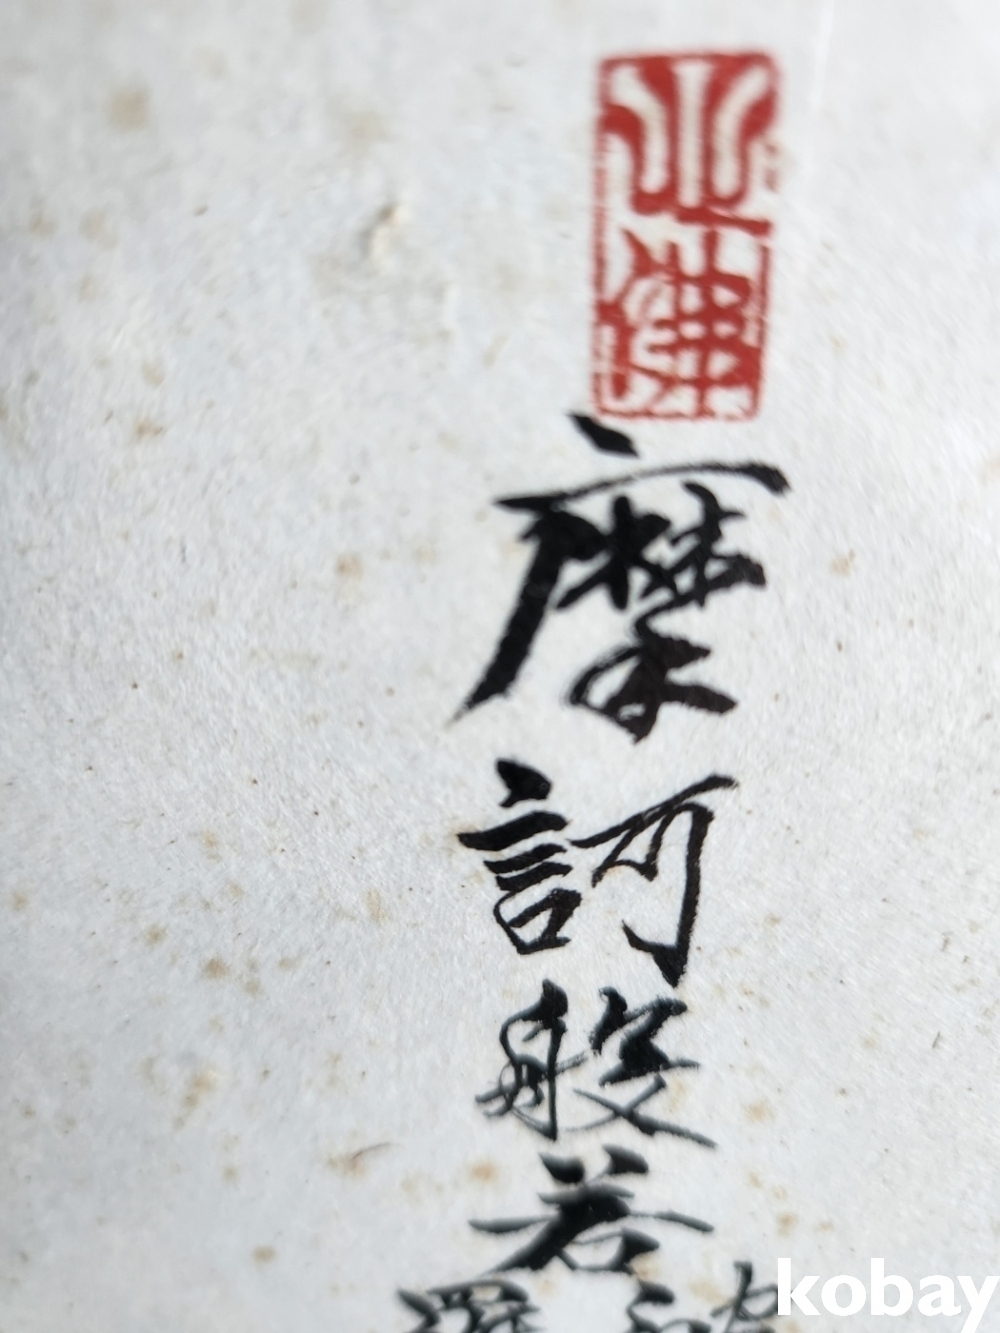 摩訶般若
kobay